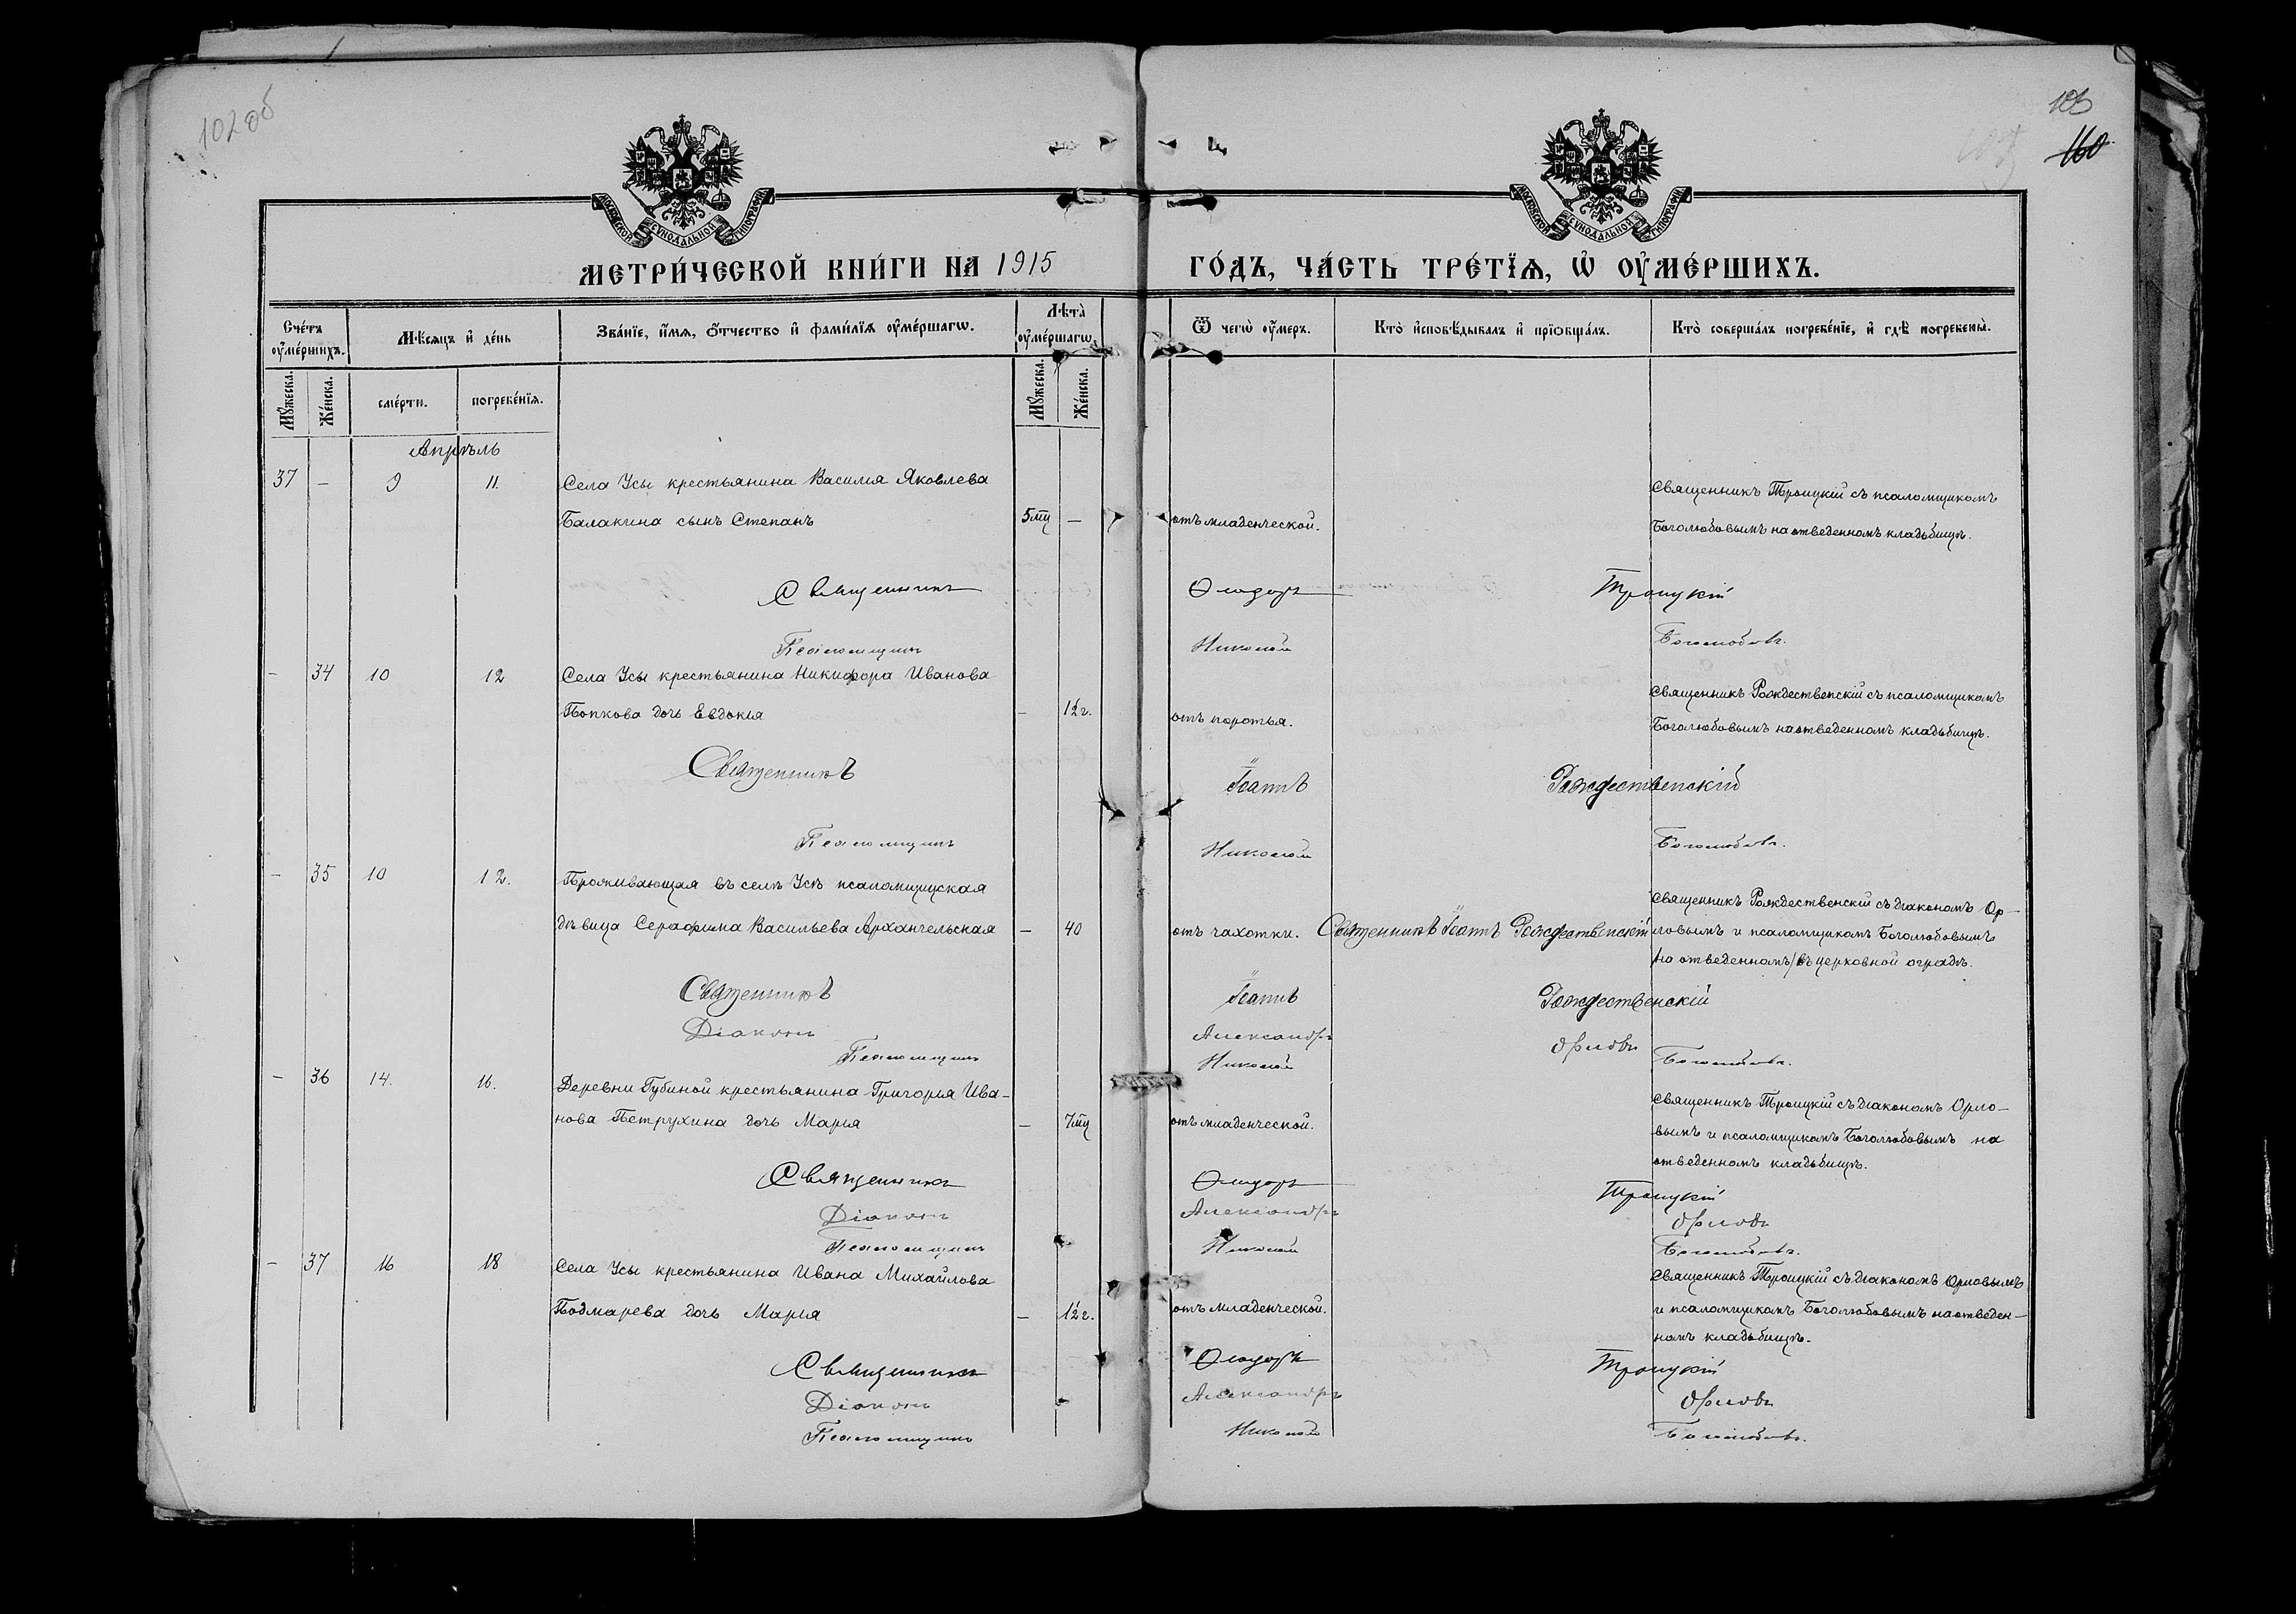 102об
103
160
МОСКОВСКОЙ СѴНОДАЛЬНОЙ ТИПОГРАФІИ
МОСКОВСКОЙ СѴНОДАЛЬНОЙ ТИПОГРАФІИ
МЕТРИ́ЧЕСКОЙ КНИ́ГИ НА 1915 ГО́ДЪ, ЧА́СТЬ ТРЕ́ТІѦ, Ѡ҆ ОУ҆МЕ́РШИХЪ.
Сче́тъ оу҆ме́ршихъ.
Мѣ́сяцъ и҆ де́нь
Зва́нїе, и҆́мѧ, ѻ҆́тчество и҆ фами́лїѧ оу҆ме́ршагѡ.
Лѣта̀ оу҆ме́ршагѡ.
Ѿ чегѡ̀ оу҆́меръ.
Кто̀ и҆сповѣ́дывалъ и҆ прїѡбща́лъ.
Кто̀ соверша́лъ погребе́нїе, и҆ гдѣ̀ погребены̀.
Мꙋ́жеска.
Же́нска.
сме́рти.
погребе́нїѧ.
Мꙋ́жеска.
Же́нска.
Апрѣль
37 – 9 11. Села Усы крестьянина Василія Яковлева
Балакина сынъ Степанъ 5мц – отъ младенческой.
Священникъ Троицкій съ псаломщикомъ
Боголюбовымъ на отведенномъ кладбищѣ.
Священникъ Ѳеодоръ Троицкій
Псаломщикъ Николай Боголюбовъ.
– 34 10 12 Села Усы крестьянина Никифора Иванова
Попкова дочь Евдокія – 1½г. отъ коротья.
Священникъ Рождественскій съ псаломщикомъ
Боголюбовымъ на отведенномъ кладбищѣ.
Священникъ Іоаннъ Рождественскій
Псаломщикъ Николай Боголюбовъ.
– 35 10 12. Проживающая въ селѣ Усѣ псаломщицкая
дѣвица Серафима Васильева Архангельская – 40 отъ чахотки. Священникъ Іоаннъ Рождественскій
Священникъ Рождественскій съ діакономъ Ор–
ловымъ и псаломщикомъ Боголюбовымъ
на отведенномъ/въ церковной оградѣ.
Священникъ Іоаннъ Рождественскій
Діаконъ Александръ Орловъ
Псаломщикъ Николай Боголюбовъ.
– 36 14. 16. Деревни Губиной крестьянина Григорія Ива–
нова Петрухина дочь Марія – 7мц отъ младенческой.
Священникъ Троицкій съ діакономъ Орло–
вымъ и псаломщикомъ Боголюбовымъ на
отведенномъ кладбищѣ.
Священникъ Ѳеодоръ Троицкій
Діаконъ Александръ Орловъ
Псаломщикъ Николай Боголюбовъ.
– 37 16 18 Села Усы крестьянина Ивана Михайлова
Подмарева дочь Марія – 1½г. отъ младенческой.
Священникъ Троицкій съ діакономъ Орловымъ
и псаломщикомъ Боголюбовымъ на отведен–
номъ кладбищѣ.
Священникъ Ѳеодоръ Троицкій
Діаконъ Александръ Орловъ
Псаломщикъ Николай Боголюбовъ.